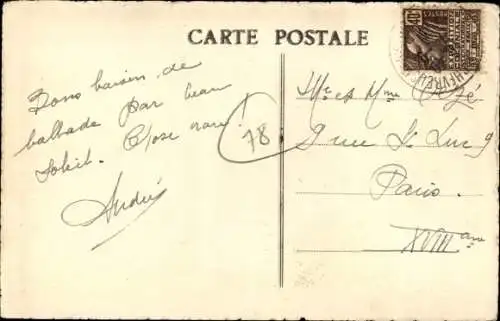 CARTE POSTALE
Bons baisers de
ballade par beau
soleil. Chose rare!
André
78
Mr et Mme
9 rue St Luc 9
Paris.
XVIII ème
POSTES
CHEVREUSE